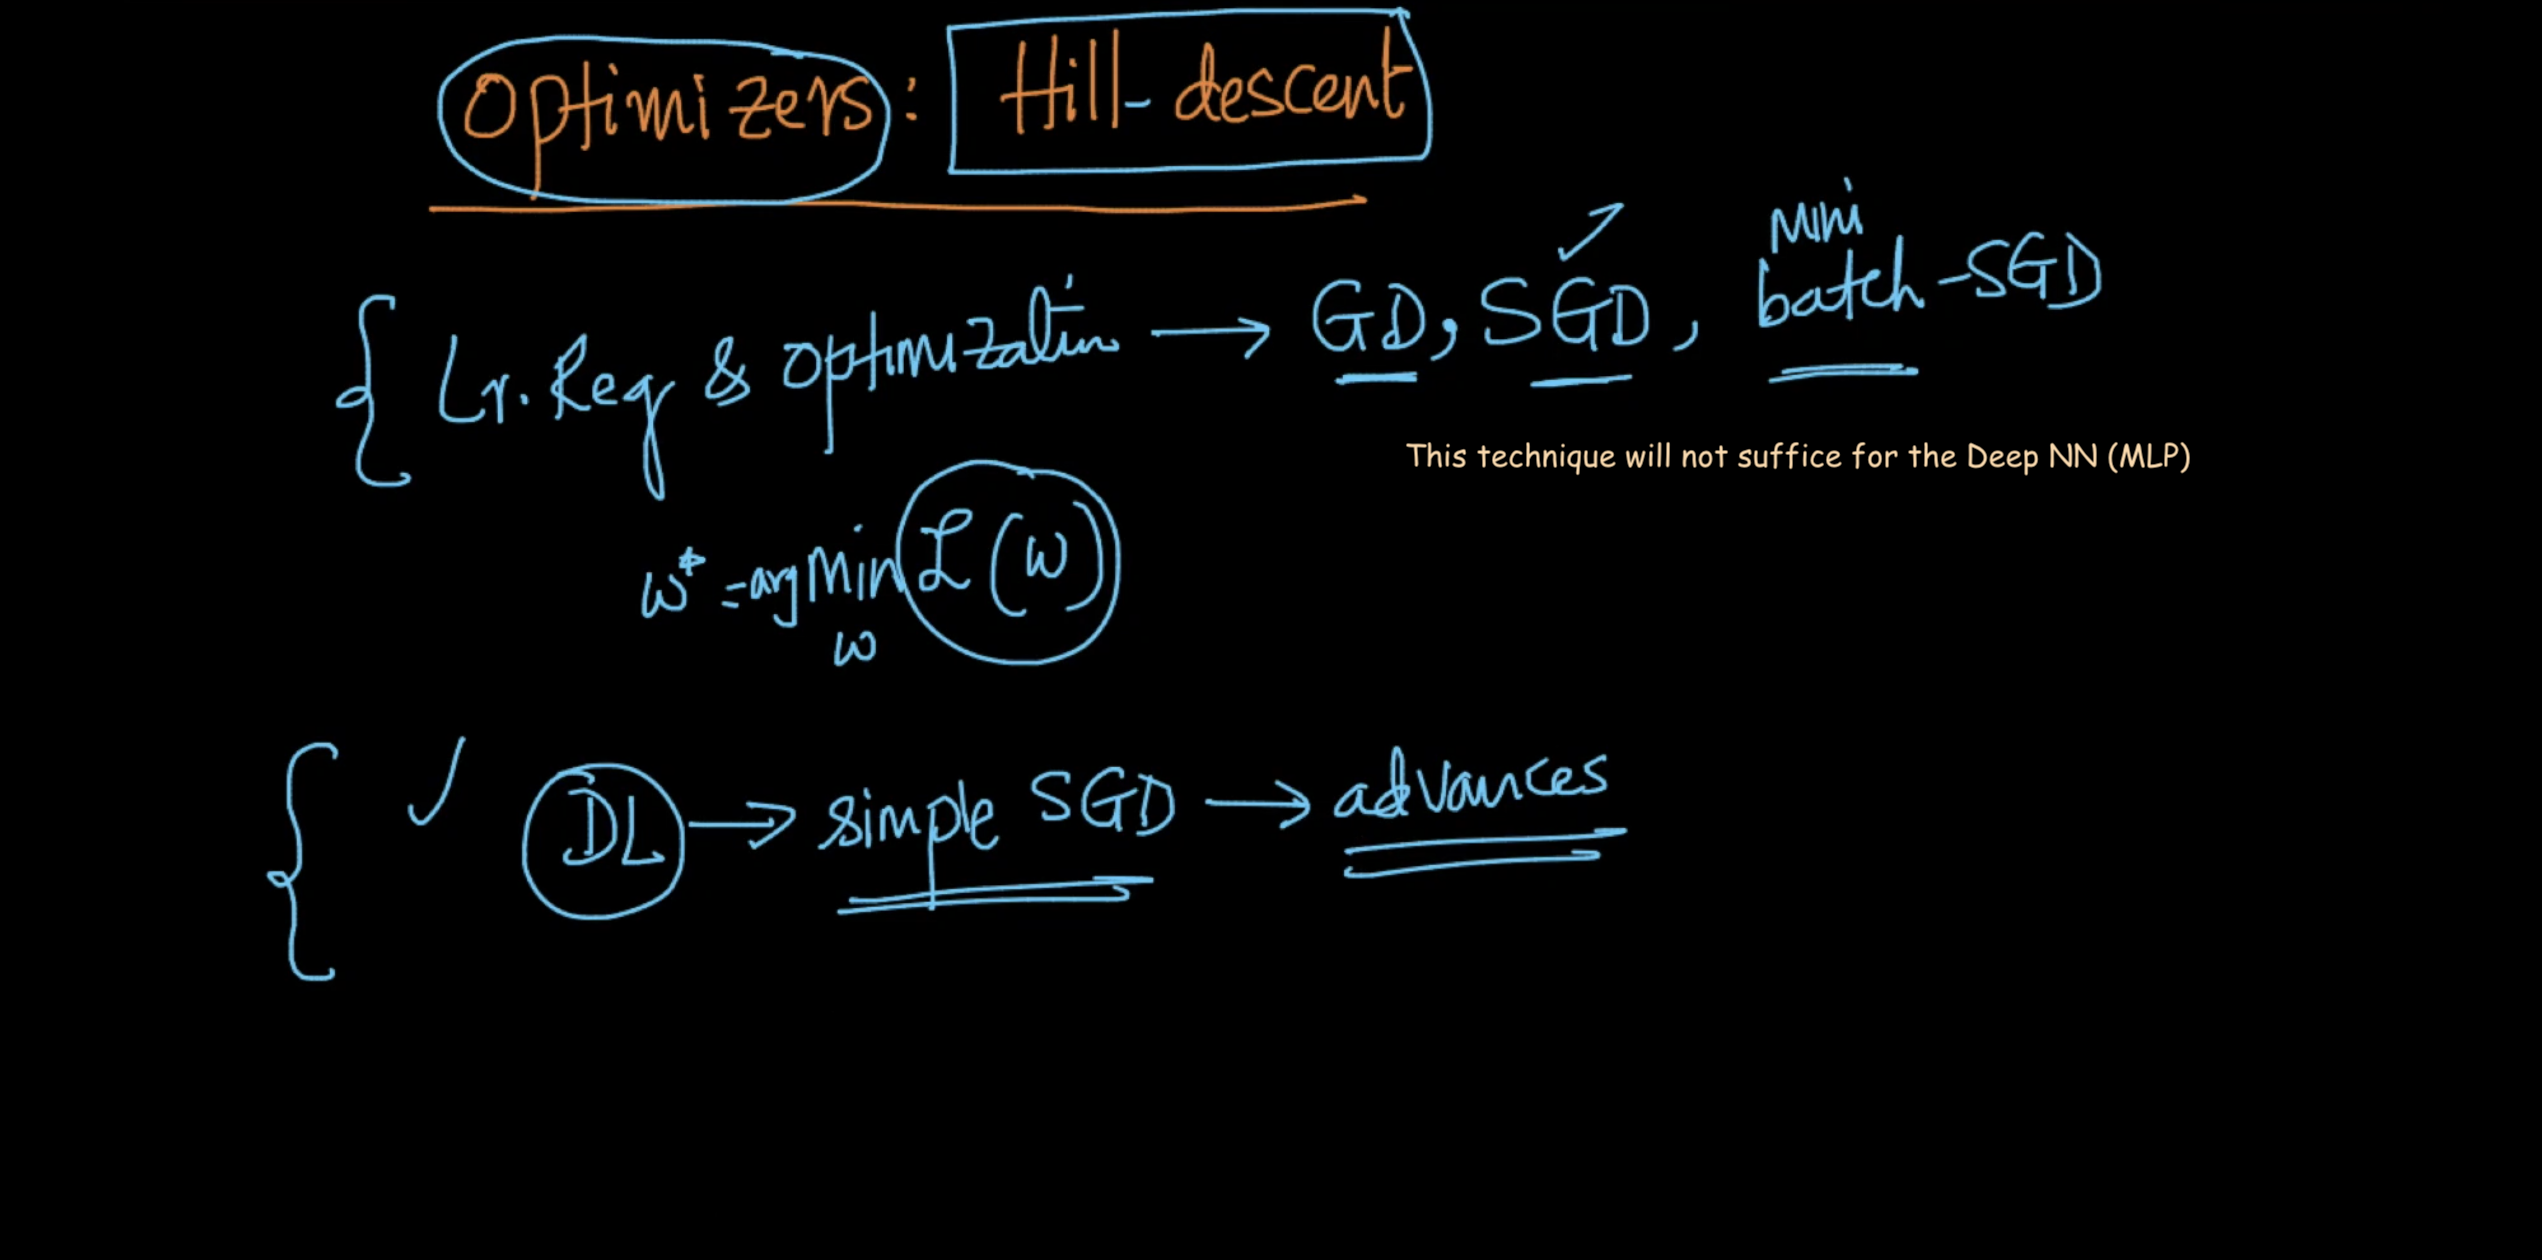 Optimizers: Hill-descent
Lr. Reg & optimization → GD, SGD, mini batch-SGD
This technique will not suffice for the Deep NN (MLP)
w* = argmin ℒ(w)
w
DL → simple SGD → advances